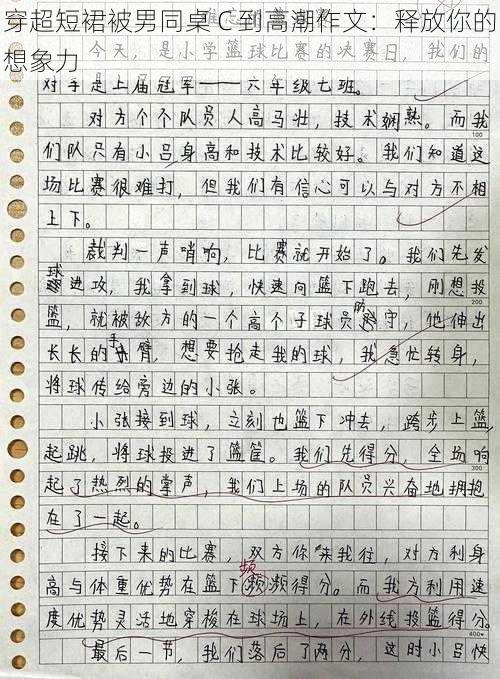 穿超短裙被男同桌 C 到高潮作文：释放你的
想象力
今天，是小学篮球比赛的决赛日，我们的
对手是上届冠军——六年级七班。
对方个个队员人高马壮，技术娴熟。而我
100
们队只有小吕身高和技术比较好。我们知道这
场比赛很难打，但我们有信心可以与对方不相
上下。
裁判一声哨响，比赛就开始了。我们先发
球进攻，我拿到球，快速向篮下跑去，刚想投
200
篮，就被敌方的一个高个子球员防守，他伸出
长长的手臂，想要抢走我的球，我急忙转身，
将球传给旁边的小张。
小张接到球，立刻也篮下冲去，跨步上篮，
起跳，将球投进了篮筐。我们先得分，全场响
300
起了热烈的掌声，我们上场的队员兴奋地拥抱
在了一起。
接下来的比赛，双方你来我往，对方利身
频
高与体重优势在篮下频频得分。而我方利用速
度优势灵活地穿梭在球场上，在外线投篮得分。
400
最后一节，我们落后了两分，这时小吕快